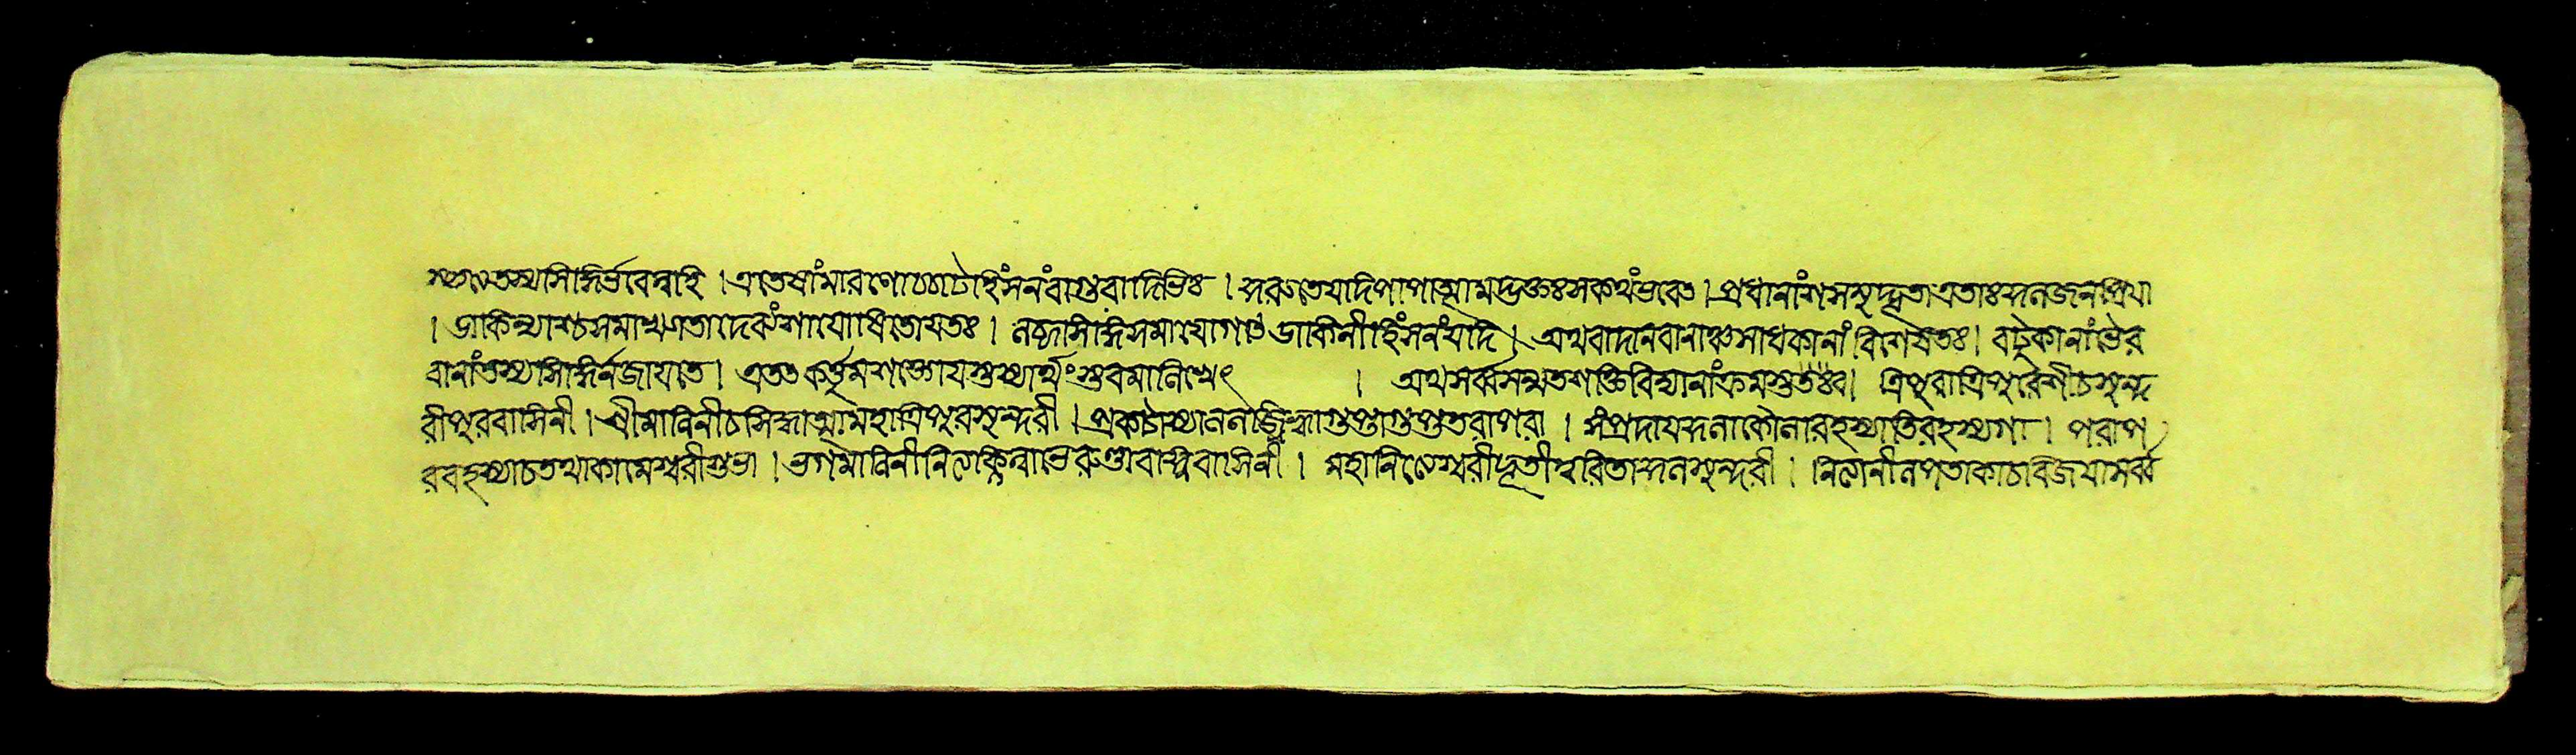 স্তস্য সিদ্ধির্ভবেন্নহি । এতেষাং মারণোচ্চাটে হিংসনং বাগুবাদিভিঃ । কুরুতে যদি পাপাত্মা মদ্ভক্তঃ স কথং ভবেৎ । প্রধানাংশসমুদ্ভূতা এতাঃ কুলজনপ্রিয়া
। ডাকিন্যাশ্চ সমাখ্যাতা দেব্যংশা যোষিতো যতঃ । নষ্টা সিদ্ধিসমাযোগাৎ ডাকিনীহিংসনং যদি । অথবা দানবানাঞ্চ সাধকানাং বিশেষতঃ । বটুকানাং ভৈর
বানাং তস্য সিদ্ধির্ন জায়তে । এতৎ কর্ত্তুমশক্তো যস্তস্যার্থং স্তবমালিখেৎ । অথ সর্ব্বসম্মতশক্তিবিদ্যানাং ক্রমস্তবঃ । ত্রিপুরা ত্রিপুরেশী চ সুন্দ
রী পুরবাসিনী । শ্রীমালিনী চ সিদ্ধাম্বা মহাত্রিপুরসুন্দরী । প্রকটা গুপ্তা গুপ্ততরাপরা । সংপ্রদায়কুলাকৌলা রহস্যাতিরহস্যগা । পরাপ
ররহস্যা চ তথা কামেশ্বরী শুভা । ভগমালিনী নিত্যক্লিন্না ভেরুণ্ডা বহ্নিবাসিনী । মহানিত্যেশ্বরী দূতী ত্বরিতা কুলসুন্দরী । নিত্যা নীলপতাকা চ বিজয়া সর্ব্ব